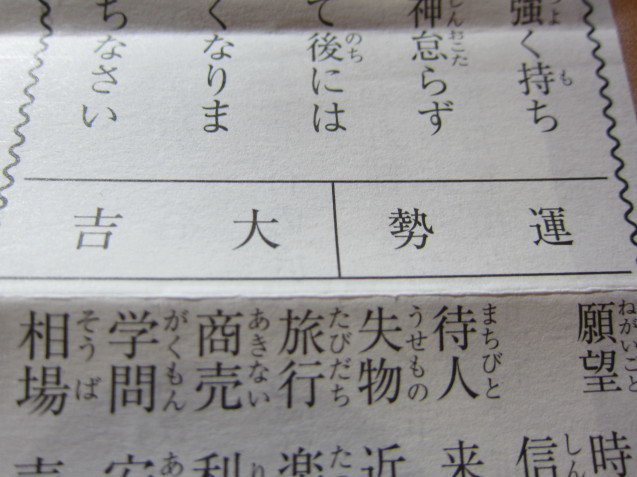 強く持ち
神怠らず
て後には
くなりま
ちなさい
運勢
大吉
願望 時
信
待人 来
失物 近
旅行 楽
商売 利
学問 安
相場